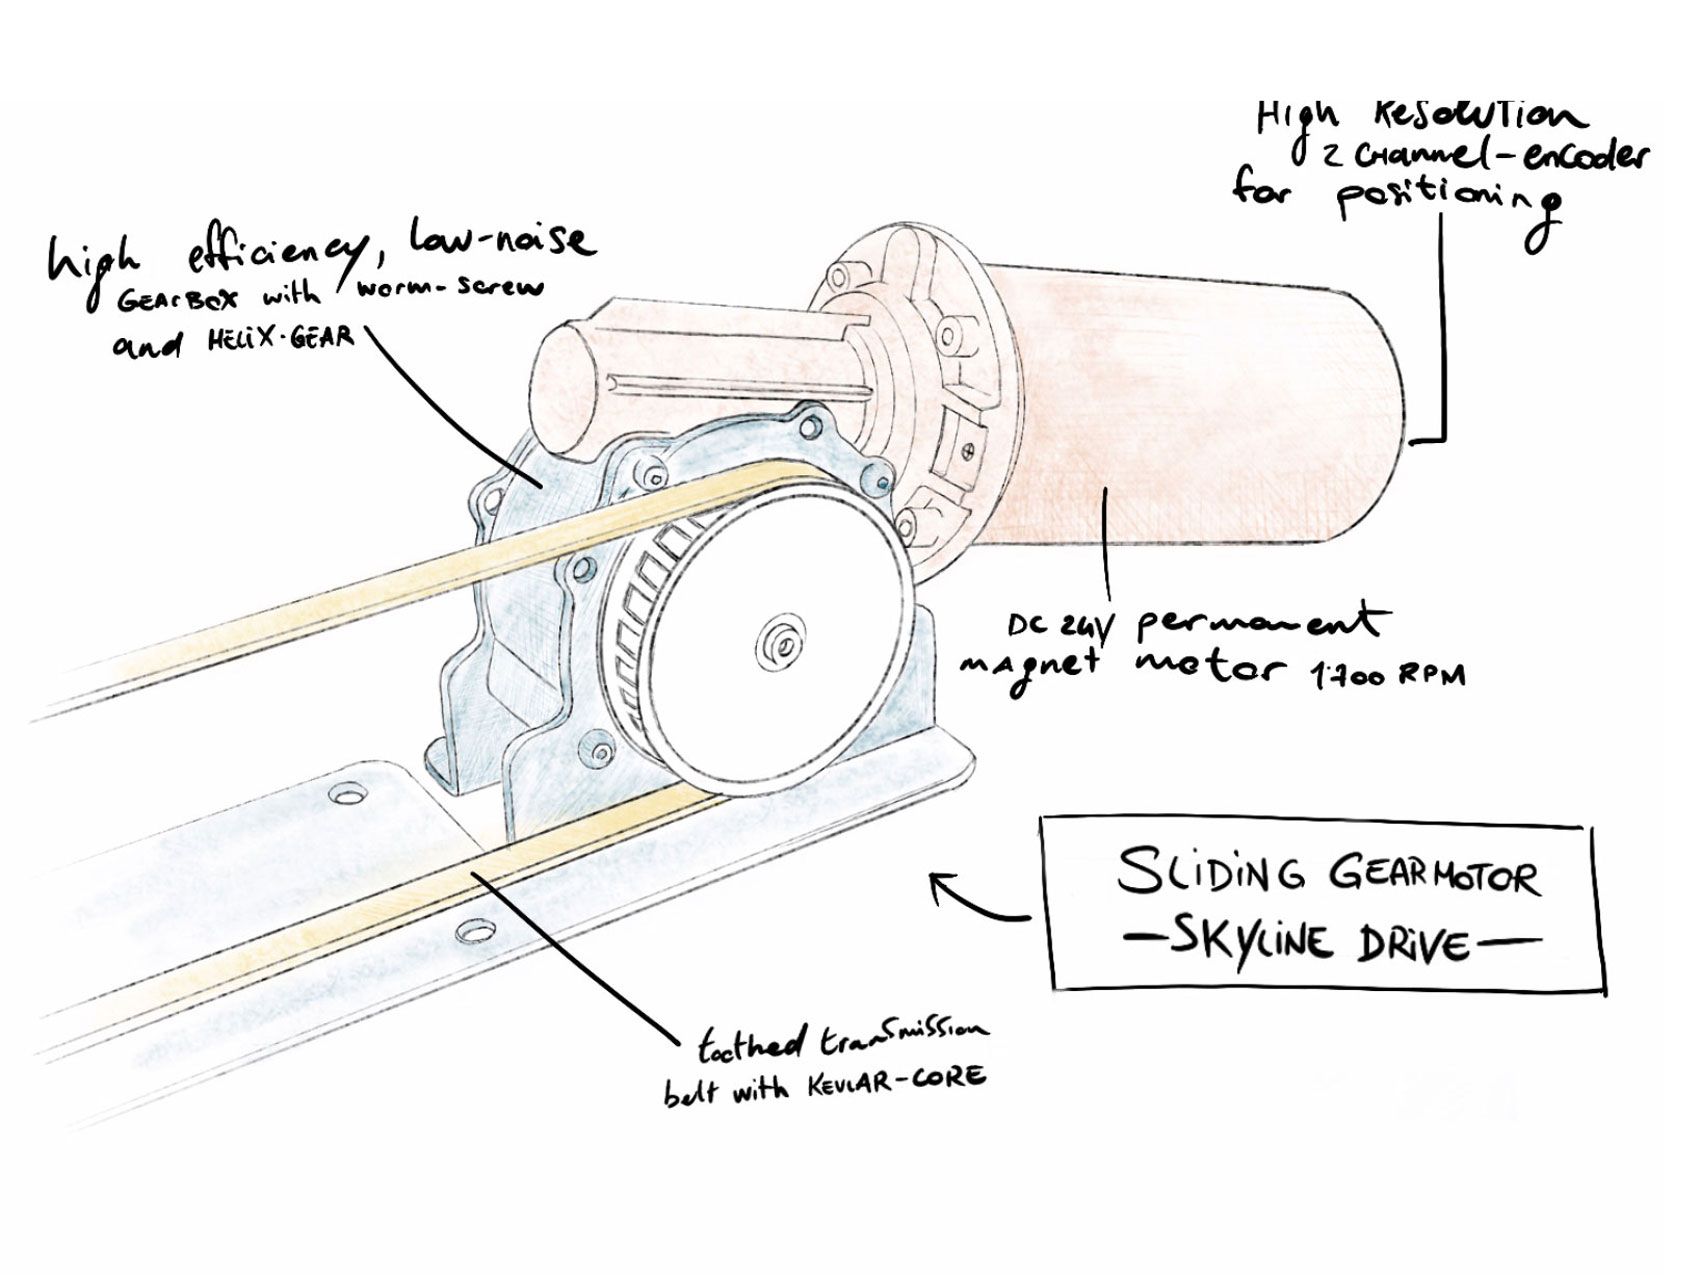 High Resolution
2 channel-encoder
for positioning
high efficiency, low-noise
GEARBOX with worm-screw
and HELIX-GEAR
DC 24V permanent
magnet motor 1.700 RPM
SLIDING GEARMOTOR
-SKYLINE DRIVE-
toothed transmission
belt with KEVLAR-CORE